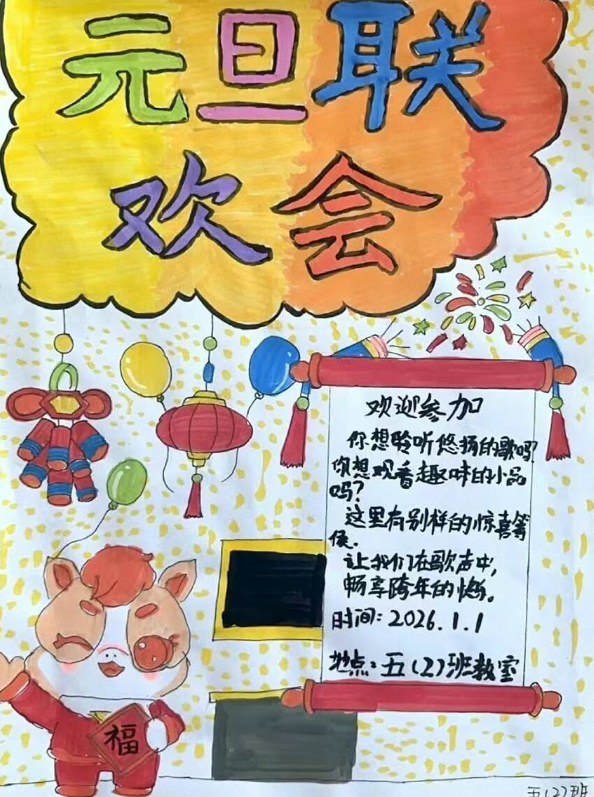 元旦联
欢会
欢迎参加
你想聆听悠扬的歌吗
你想观看趣味的小品
吗?
这里有别样的惊喜等
候.
让我们在歌声中,
畅享跨年的快乐。
时间: 2026.1.1
地点: 五(2)班教室
福
五(2)班